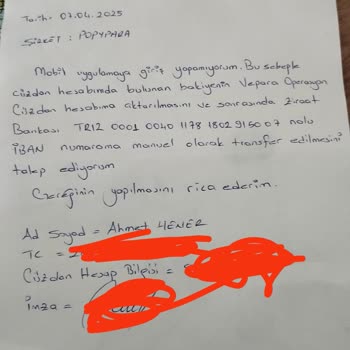 Tarih: 07.04.2025
ŞİRKET: POPYPARA
Mobil uygulamaya giriş yapamıyorum. Bu sebeple
cüzdan hesabımda bulunan bakiyenin Vepara Operasyon
Cüzdan hesabıma aktarılmasını ve sonrasında Ziraat
Bankası TR12 0001 0040 1178 1802 9150 07 nolu
İBAN numarama manuel olarak transfer edilmesini
talep ediyorum
Gereğinin yapılmasını rica ederim.
Ad Soyad = Ahmet
TC =
Cüzdan Hesap Bilgisi =
İmza =